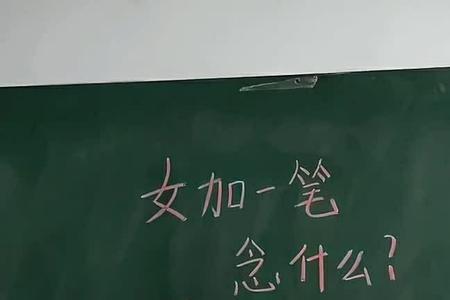 女加一笔
念什么?